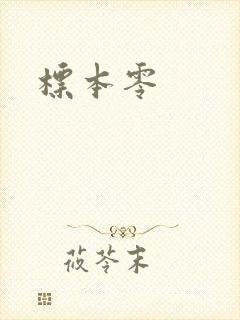 標本零
莜苓末